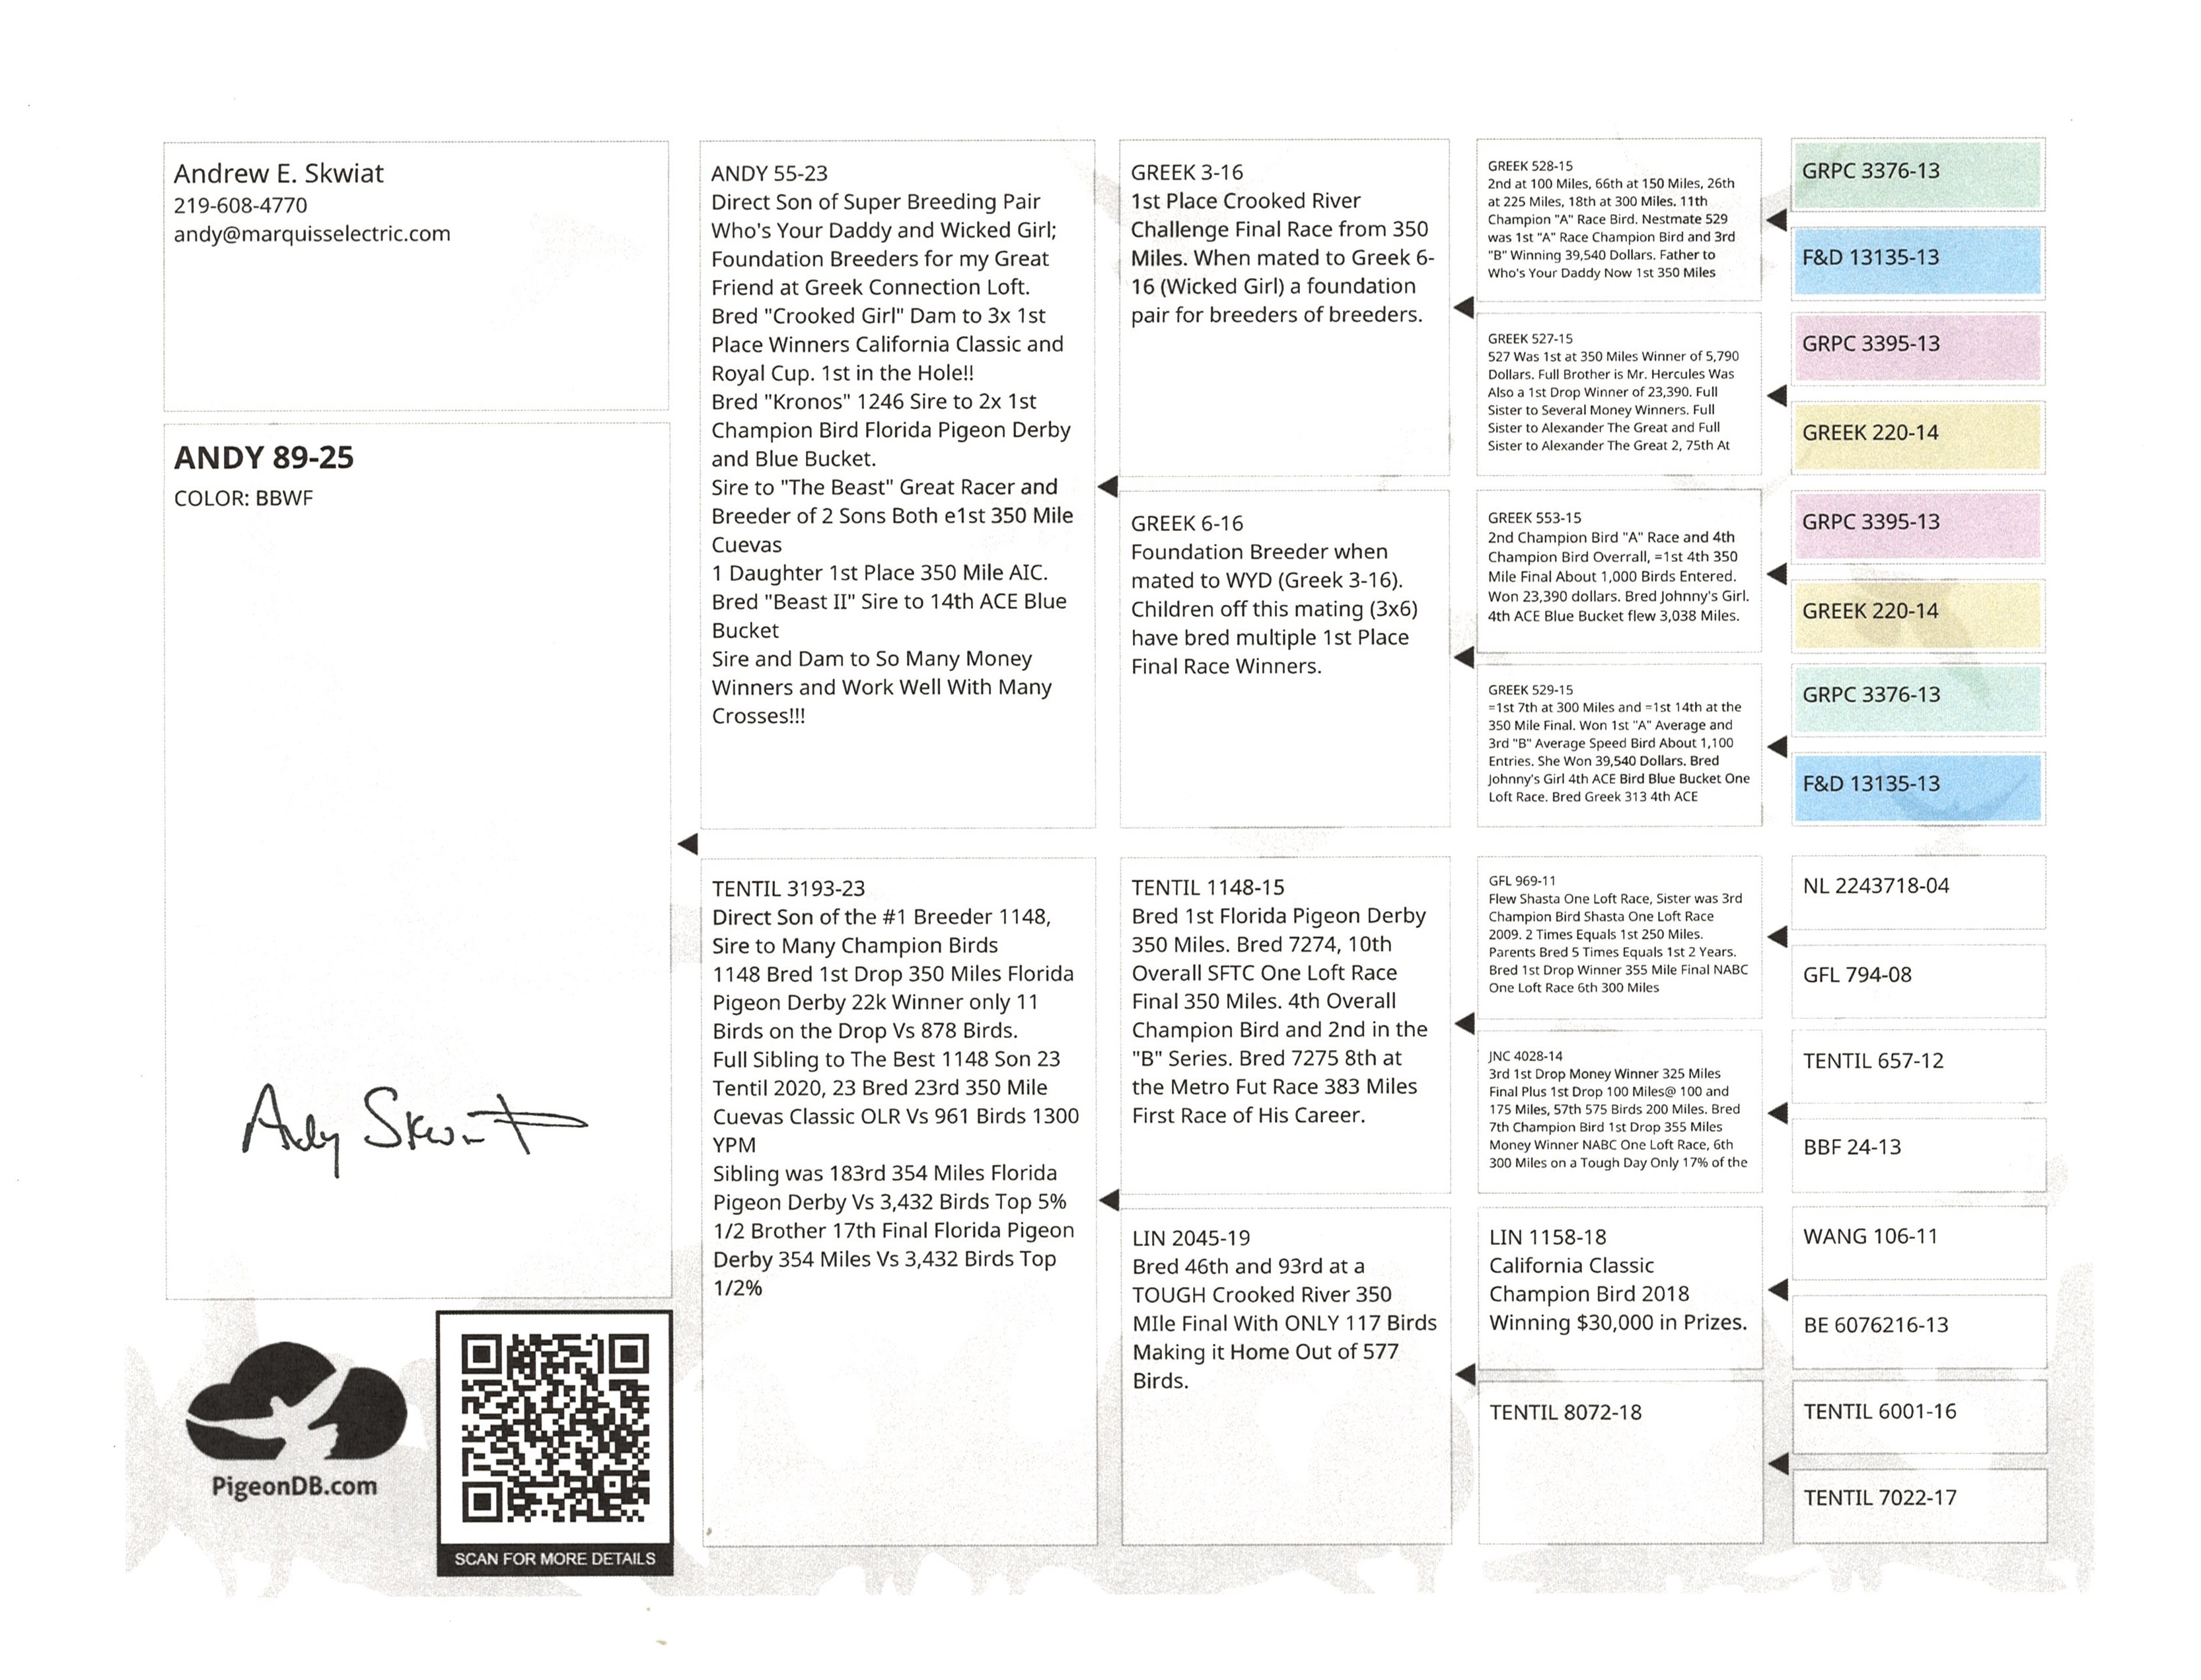 Andrew E. Skwiat
219-608-4770
andy@marquisselectric.com
ANDY 89-25
COLOR: BBWF
Andy Skwiat
PigeonDB.com
SCAN FOR MORE DETAILS
ANDY 55-23
Direct Son of Super Breeding Pair
Who's Your Daddy and Wicked Girl;
Foundation Breeders for my Great
Friend at Greek Connection Loft.
Bred "Crooked Girl" Dam to 3x 1st
Place Winners California Classic and
Royal Cup. 1st in the Hole!!
Bred "Kronos" 1246 Sire to 2x 1st
Champion Bird Florida Pigeon Derby
and Blue Bucket.
Sire to "The Beast" Great Racer and
Breeder of 2 Sons Both e1st 350 Mile
Cuevas
1 Daughter 1st Place 350 Mile AIC.
Bred "Beast II" Sire to 14th ACE Blue
Bucket
Sire and Dam to So Many Money
Winners and Work Well With Many
Crosses!!!
TENTIL 3193-23
Direct Son of the #1 Breeder 1148,
Sire to Many Champion Birds
1148 Bred 1st Drop 350 Miles Florida
Pigeon Derby 22k Winner only 11
Birds on the Drop Vs 878 Birds.
Full Sibling to The Best 1148 Son 23
Tentil 2020, 23 Bred 23rd 350 Mile
Cuevas Classic OLR Vs 961 Birds 1300
YPM
Sibling was 183rd 354 Miles Florida
Pigeon Derby Vs 3,432 Birds Top 5%
1/2 Brother 17th Final Florida Pigeon
Derby 354 Miles Vs 3,432 Birds Top
1/2%
GREEK 3-16
1st Place Crooked River
Challenge Final Race from 350
Miles. When mated to Greek 6-
16 (Wicked Girl) a foundation
pair for breeders of breeders.
GREEK 6-16
Foundation Breeder when
mated to WYD (Greek 3-16).
Children off this mating (3x6)
have bred multiple 1st Place
Final Race Winners.
TENTIL 1148-15
Bred 1st Florida Pigeon Derby
350 Miles. Bred 7274, 10th
Overall SFTC One Loft Race
Final 350 Miles. 4th Overall
Champion Bird and 2nd in the
"B" Series. Bred 7275 8th at
the Metro Fut Race 383 Miles
First Race of His Career.
LIN 2045-19
Bred 46th and 93rd at a
TOUGH Crooked River 350
MIle Final With ONLY 117 Birds
Making it Home Out of 577
Birds.
GREEK 528-15
2nd at 100 Miles, 66th at 150 Miles, 26th
at 225 Miles, 18th at 300 Miles. 11th
Champion "A" Race Bird. Nestmate 529
was 1st "A" Race Champion Bird and 3rd
"B" Winning 39,540 Dollars. Father to
Who's Your Daddy Now 1st 350 Miles
GREEK 527-15
527 Was 1st at 350 Miles Winner of 5,790
Dollars. Full Brother is Mr. Hercules Was
Also a 1st Drop Winner of 23,390. Full
Sister to Several Money Winners. Full
Sister to Alexander The Great and Full
Sister to Alexander The Great 2, 75th At
GREEK 553-15
2nd Champion Bird "A" Race and 4th
Champion Bird Overrall, =1st 4th 350
Mile Final About 1,000 Birds Entered.
Won 23,390 dollars. Bred Johnny's Girl.
4th ACE Blue Bucket flew 3,038 Miles.
GREEK 529-15
=1st 7th at 300 Miles and =1st 14th at the
350 Mile Final. Won 1st "A" Average and
3rd "B" Average Speed Bird About 1,100
Entries. She Won 39,540 Dollars. Bred
Johnny's Girl 4th ACE Bird Blue Bucket One
Loft Race. Bred Greek 313 4th ACE
GFL 969-11
Flew Shasta One Loft Race, Sister was 3rd
Champion Bird Shasta One Loft Race
2009. 2 Times Equals 1st 250 Miles.
Parents Bred 5 Times Equals 1st 2 Years.
Bred 1st Drop Winner 355 Mile Final NABC
One Loft Race 6th 300 Miles
JNC 4028-14
3rd 1st Drop Money Winner 325 Miles
Final Plus 1st Drop 100 Miles@ 100 and
175 Miles, 57th 575 Birds 200 Miles. Bred
7th Champion Bird 1st Drop 355 Miles
Money Winner NABC One Loft Race, 6th
300 Miles on a Tough Day Only 17% of the
LIN 1158-18
California Classic
Champion Bird 2018
Winning $30,000 in Prizes.
TENTIL 8072-18
GRPC 3376-13
F&D 13135-13
GRPC 3395-13
GREEK 220-14
GRPC 3395-13
GREEK 220-14
GRPC 3376-13
F&D 13135-13
NL 2243718-04
GFL 794-08
TENTIL 657-12
BBF 24-13
WANG 106-11
BE 6076216-13
TENTIL 6001-16
TENTIL 7022-17